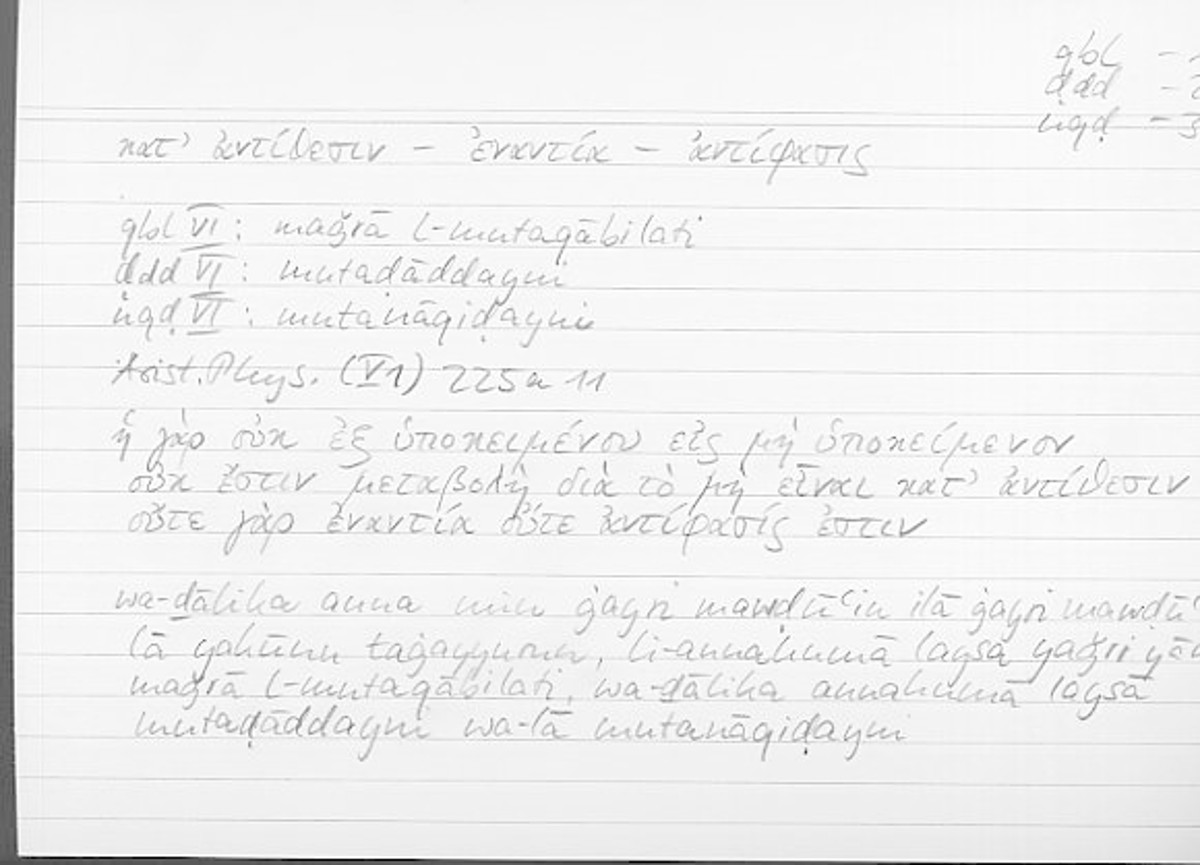 qbl –
ḍdd –
nqḍ –
κατ’ ἀντίθεσιν – ἐναντία – ἀντίφασις
qbl VI : maǧrā l-mutaqābilati
ḍdd VI : mutaḍāddayni
nqḍ VI : mutanāqiḍayni
Arist. Phys. (V1) 225a 11
ἡ γὰρ οὐκ ἐξ ὑποκειμένου εἰς μὴ ὑποκείμενον
οὐκ ἔστιν μεταβολὴ διὰ τὸ μὴ εἶναι κατ’ ἀντίθεσιν
οὔτε γὰρ ἐναντία οὔτε ἀντίφασίς ἐστιν
wa-ḏālika anna min ġayri mawḍūʿin ilā ġayri mawḍū
lā yakūnu taġayyurun, li-annahumā laysa yaǧri yā
maǧrā l-mutaqābilati, wa-ḏālika annahumā laysā
mutaḍāddayni wa-lā mutanāqiḍayni